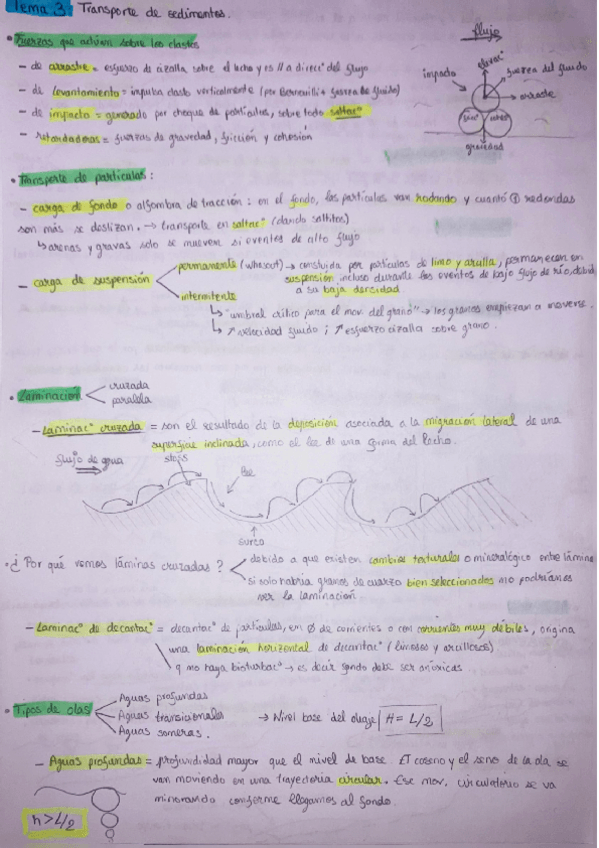 Tema 3: Transporte de sedimentos.
• Fuerzas que actúan sobre los clastos
flujo
– de arrastre = esfuerzo de cizalla sobre el lecho y es // a direcc° del flujo
– de levantamiento = impulsa clasto verticalmente (por Bernouilli = fuerza de fluido)
– de impacto = generado por choque de partículas, sobre todo saltac°
– retardadoras = fuerzas de gravedad, fricción y cohesión
impacto
elevac°
fuerza del fluido
arrastre
fricc°
cohes°
gravedad
• Transporte de partículas:
– carga de fondo o alfombra de tracción: en el fondo, las partículas van rodando y cuanto ⊕ redondas
son más se deslizan. → transporta en saltac° (dando saltitos)
↳ arenas y gravas solo se mueven si eventos de alto flujo
– carga de suspensión
permanente (washload) → constituida por partículas de limo y arcilla, permanecen en
suspensión incluso durante los eventos de bajo flujo de río, debido
a su baja densidad
intermitente
↳ "umbral crítico para el mov. del grano" → los granos empiezan a moverse.
↳ ↑ velocidad fluido ; ↑ esfuerzo cizalla sobre grano.
• Laminación
cruzada
paralela
– Laminac° cruzada = son el resultado de la deposición asociada a la migración lateral de una
superficie inclinada, como el lee de una forma del lecho.
flujo de agua
stoss
lee
surco
• ¿Por qué vemos láminas cruzadas?
debido a que existen cambios texturales o mineralógico entre lámina
si solo habría granos de cuarzo bien seleccionados no podríamos
ver la laminación
– Laminac° de decantac° = decantac° de partículas, en Ø de corrientes o con corrientes muy débiles, origina
una laminación horizontal de decantac° (limosos y arcillosos)
q no haya bioturbac° → es decir fondo debe ser anóxicas
• Tipos de olas
Aguas profundas
Aguas transicionales
Aguas someras.
→ Nivel base del oleaje H = L/2
– Aguas profundas = profundidad mayor que el nivel de base. El coseno y el seno de la ola se
van moviendo en una trayectoria circular. Ese mov. circulatorio se va
minorando conforme llegamos al fondo.
h > L/2